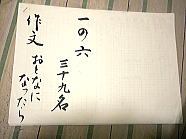 一の六
三十九名
作文
おとなに
なったら